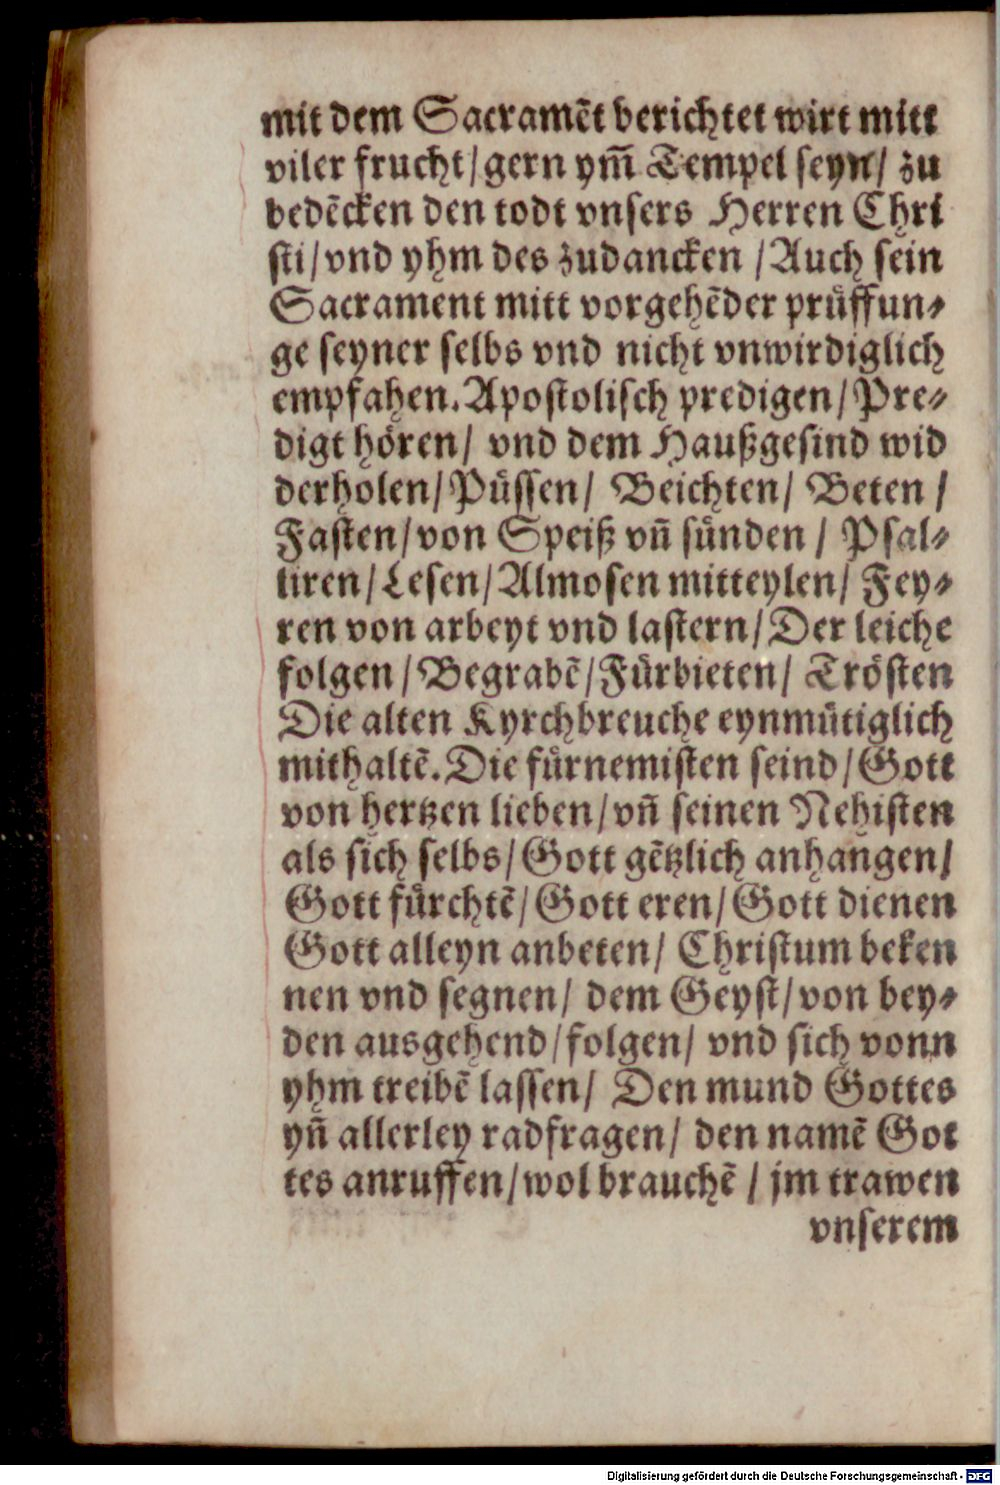 mit dem Sacramēt berichtet wirt mitt
viler frucht/gern ym̄ Tempel seyn/ zu
bedēcken den todt vnsers Herren Chri
sti/vnd yhm des zudancken /Auch sein
Sacrament mitt vorgehēder pruͤffun⸗
ge seyner selbs vnd nicht vnwirdiglich
empfahen.Apostolisch predigen/Pre⸗
digt hoͤren/ vnd dem Haußgesind wid
derholen/Puͤssen/ Beichten/ Beten /
Fasten/von Speiß vn̄ suͤnden / Psal⸗
liren/Lesen/Almosen mitteylen/ Fey⸗
ren von arbeyt vnd lastern/Der leiche
folgen/Begrabē/Fuͤrbieten/ Troͤsten
Die alten Kyrchbreuche eynmuͤtiglich
mithaltē.Die fuͤrnemisten seind/Gott
von hertzen lieben/vn̄ seinen Nehisten
als sich selbs/Gott gētzlich anhangen/
Gott fuͤrchtē/Gott eren/Gott dienen
Gott alleyn anbeten/ Christum beken
nen vnd segnen/ dem Geyst/von bey⸗
den ausgehend/folgen/ vnd sich vonn
yhm treibē lassen/ Den mund Gottes
yn̄ allerley radfragen/ den namē Got
tes anruffen/wol brauchē / jm trawen
vnserem
Digitalisierung gefördert durch die Deutsche Forschungsgemeinschaft - DFG